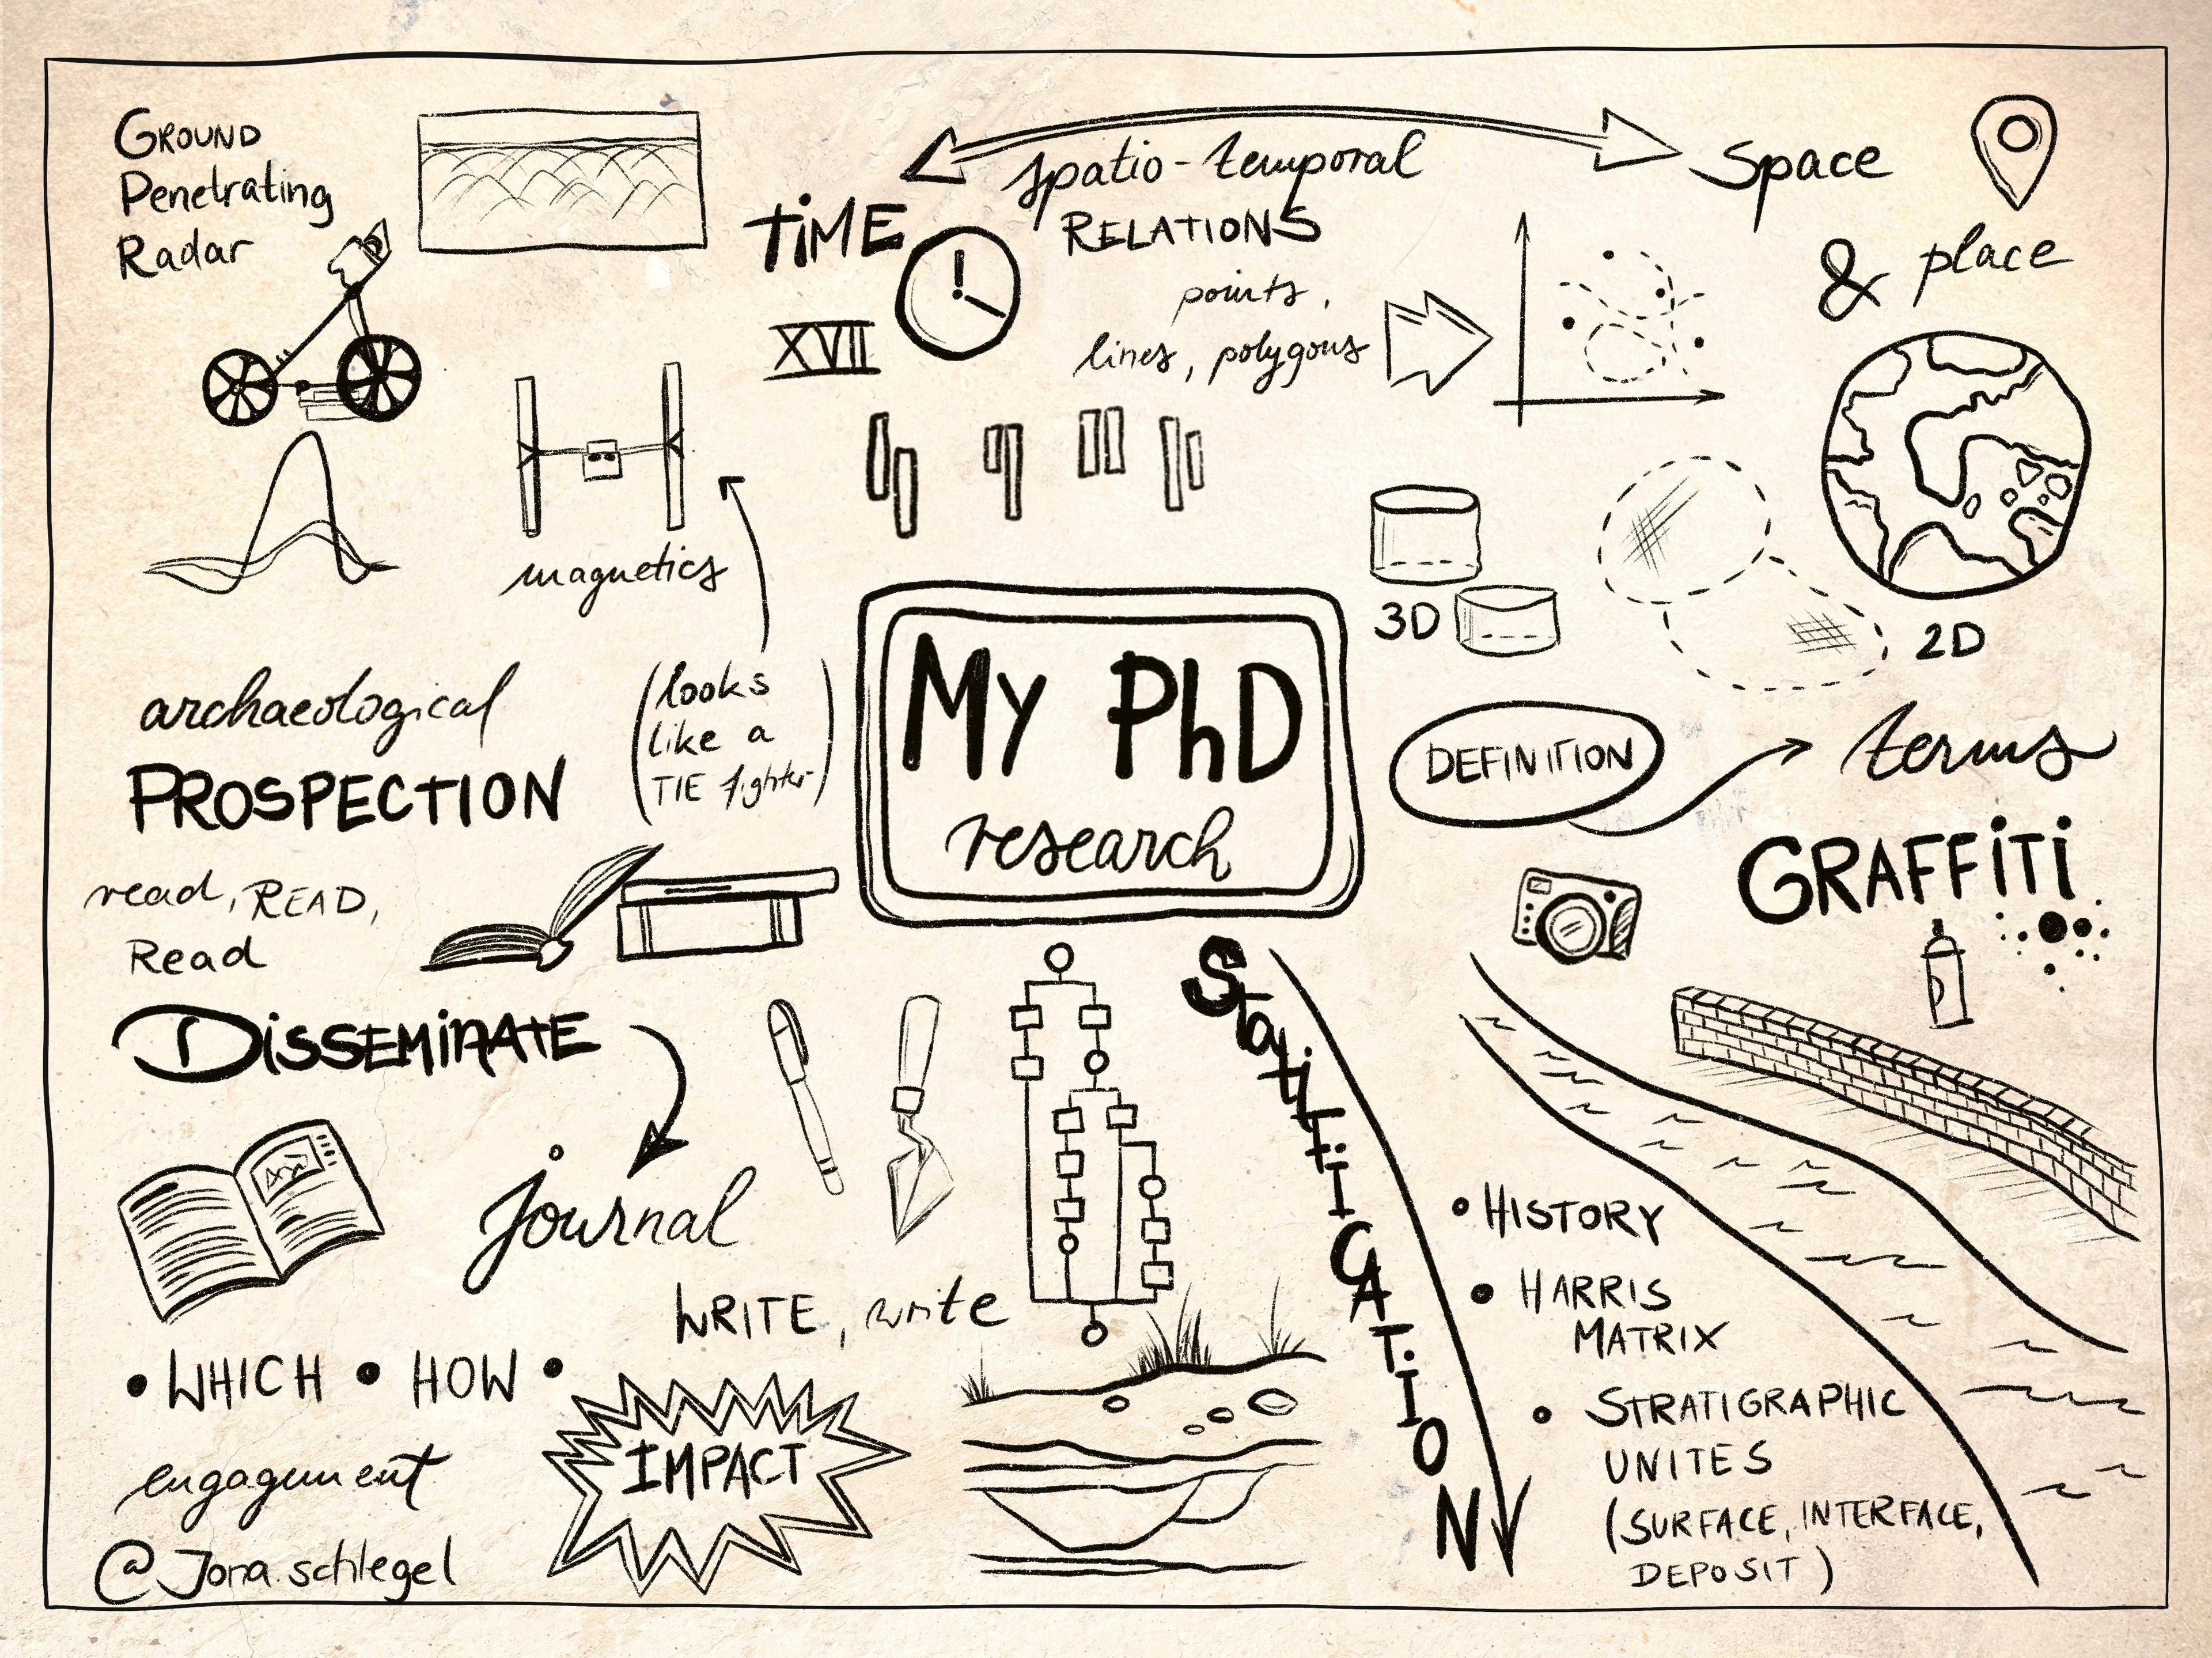 GROUND
Penetrating
Radar
TiME
XVII
spatio-temporal
RELATIONS
points,
lines, polygons
Space
& place
magnetics
(looks
like a
TIE fighter)
archaeological
PROSPECTION
My PhD
research
3D
2D
DEFINITION
terms
GRAFFiTi
read, READ,
Read
DiSSEMiNATE
journal
WRITE, write
• WHICH • HOW •
engagement
IMPACT
@Jona.schlegel
STRATIFICATION
• HISTORY
• HARRIS
MATRIX
• STRATIGRAPHIC
UNITES
(SURFACE, INTERFACE,
DEPOSIT)